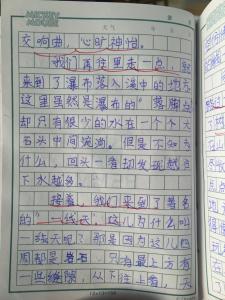 MICKEY
MOUSE
天气
交响曲，心旷神怡。
我们再往里走一点，就
来到了瀑布落入溪中的地方
这里虽然是瀑布的“落脚点”
却只有很少的水在一个个大
石头中间流淌。但是不知为
什么，回头一看却发现越当
下水越多。
接着，我们来到了著名
的“一线天”，这儿为什么叫
一线天呢？那是因为这儿四
周都是岩石，只有最上方有
一些缝隙，从下往上看，天